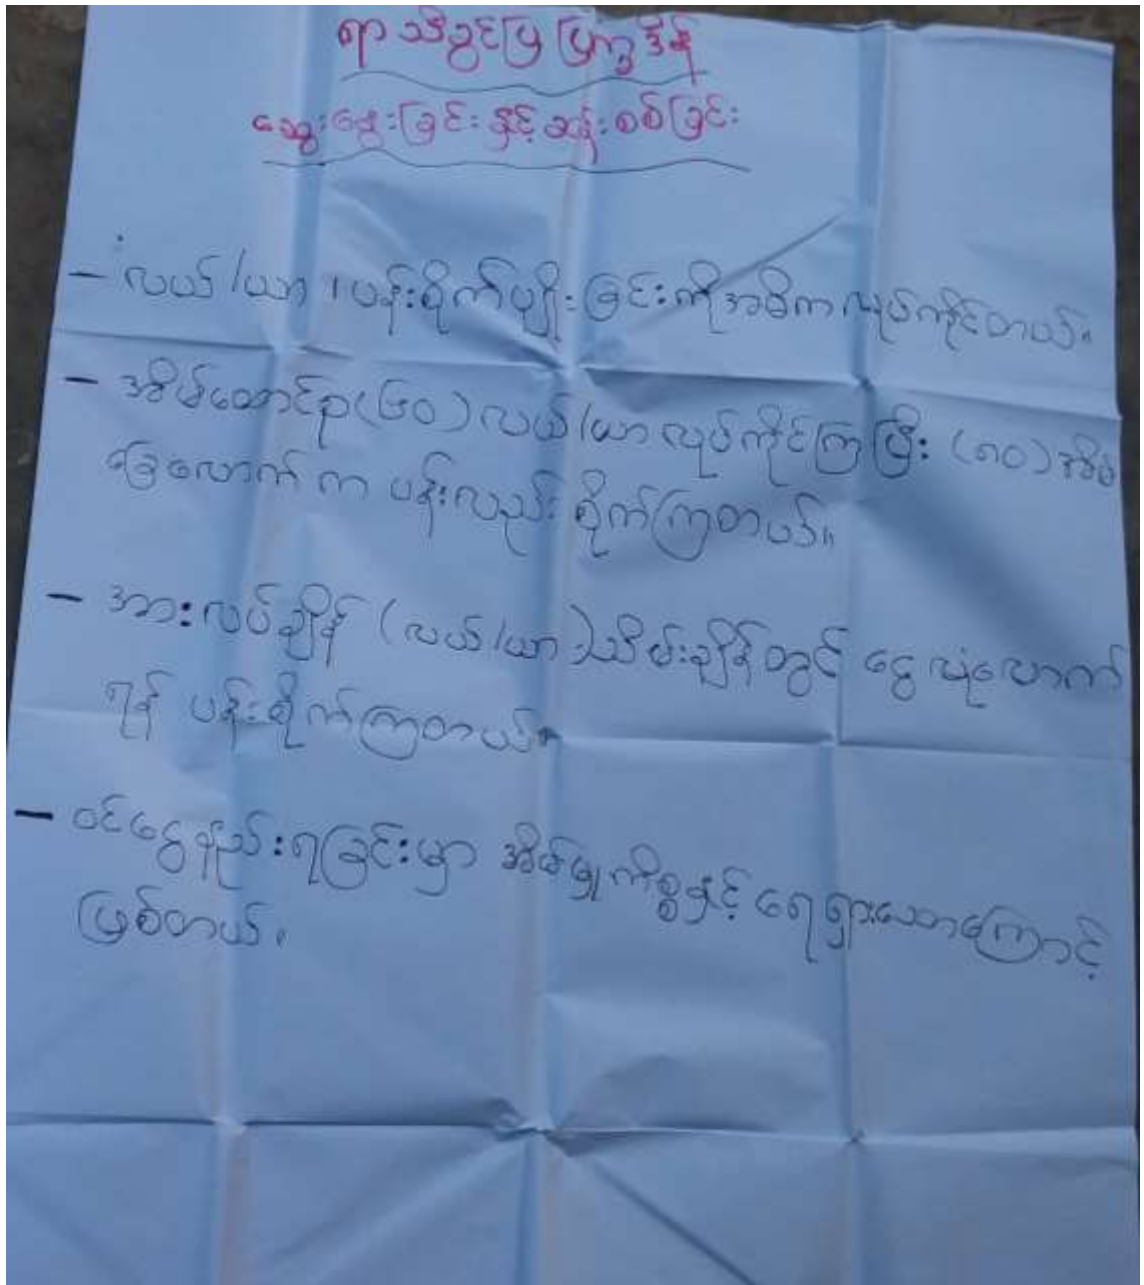 ရာသီခွင်ပြ ပြက္ခဒိန်
ဆွေးနွေးခြင်း နှင့် ဆန်းစစ်ခြင်း
– လယ်/ယာ ၊ ပန်းစိုက်ပျိုးခြင်းကိုအဓိက လုပ်ကိုင်တယ်။
– အိမ်ထောင်စု (၆၀) လယ်/ယာ လုပ်ကိုင်ကြပြီး (၈၀) အိမ်
ခြေလောက်က ပန်းလည်း စိုက်ကြတယ်။
– အားလပ်ချိန် (လယ်/ယာ) သိမ်းချိန်တွင် ငွေ လုံလောက်
ရန် ပန်းစိုက်ကြတယ်။
– ဝင်ငွေနည်းရခြင်းမှာ အိမ်မှုကိစ္စနှင့် ရေရှားသောကြောင့်
ဖြစ်တယ်။